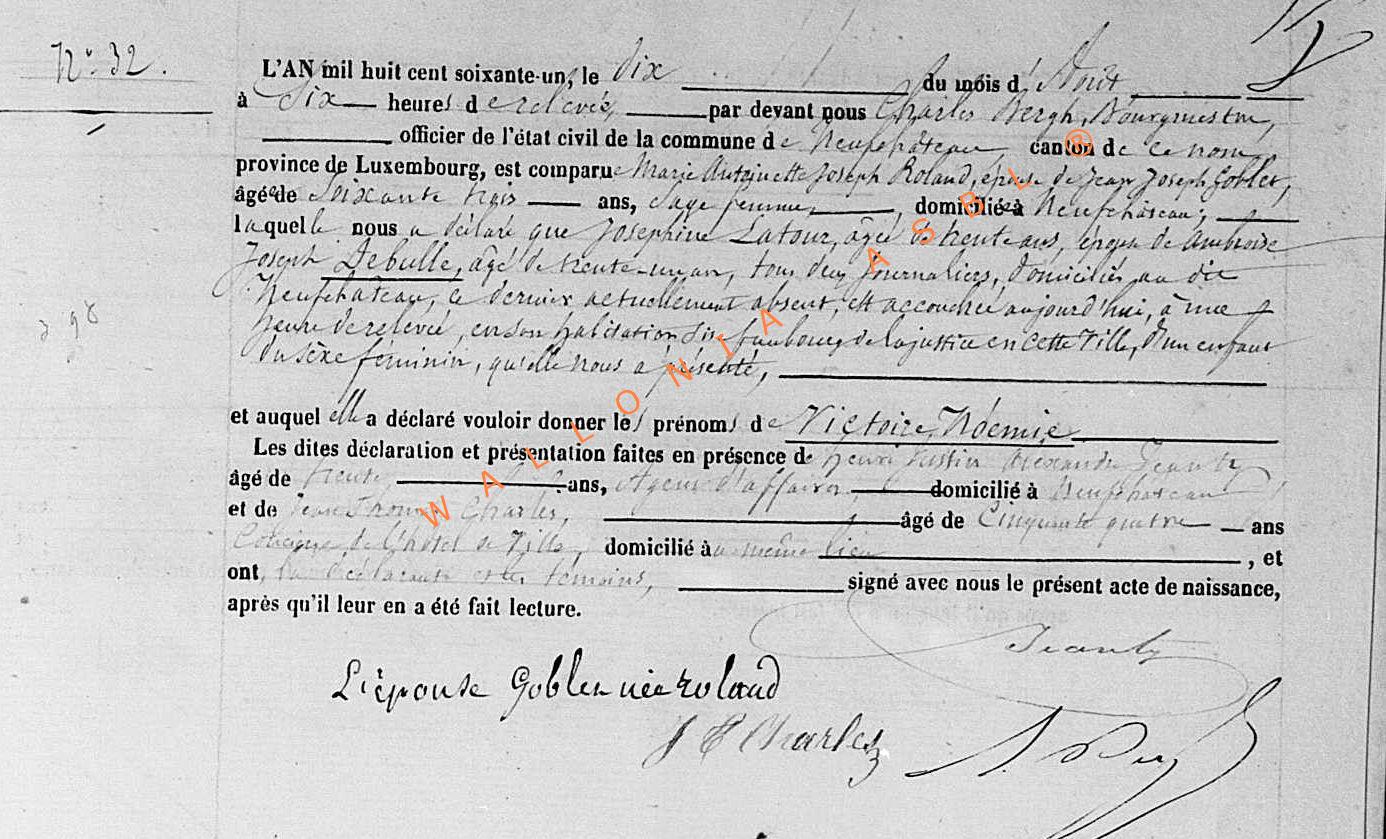 N° 32.
L'AN mil huit cent soixante-un, le dix du mois d'Août
à Six heures de relevée, par devant nous Charles Bergh, Bourgmestre,
officier de l'état civil de la commune de Neufchâteau, canton de ce nom
province de Luxembourg, est comparue Marie Antoinette Joseph Roland, épouse de Jean Joseph Goblet,
âgée de Soixante trois ans, Sage femme, domiciliée à Neufchâteau,
laquelle nous a déclaré que Joséphine Latour, âgée de trente ans, épouse de Ambroise
Joseph Debulle, âgé de trente-un an, tous deux journaliers, domiciliés au dit
Neufchateau, ce dernier actuellement absent, est accouchée aujourd'hui, à une
heure de relevée, en son habitation sise faubourg de la justice en cette Ville, d'un enfant
du sèxe féminin, qu'elle nous a présenté,
et auquel elle a déclaré vouloir donner les prénoms de Victoire, Noémie
Les dites déclaration et présentation faites en présence de henri Justin Alexandre Jeanty
âgé de trente ans, Agent d'affaires domicilié à Neufchateau
et de Jean Thomas Charles, âgé de Cinquante quatre ans
Concierge de l'hôtel de Ville, domicilié à même lieu, et
ont, la déclarante et les témoins, signé avec nous le présent acte de naissance,
après qu'il leur en a été fait lecture.
Jeanty
L'épouse Goblet née roland
J T Charles
WALLONIA ASBL ®